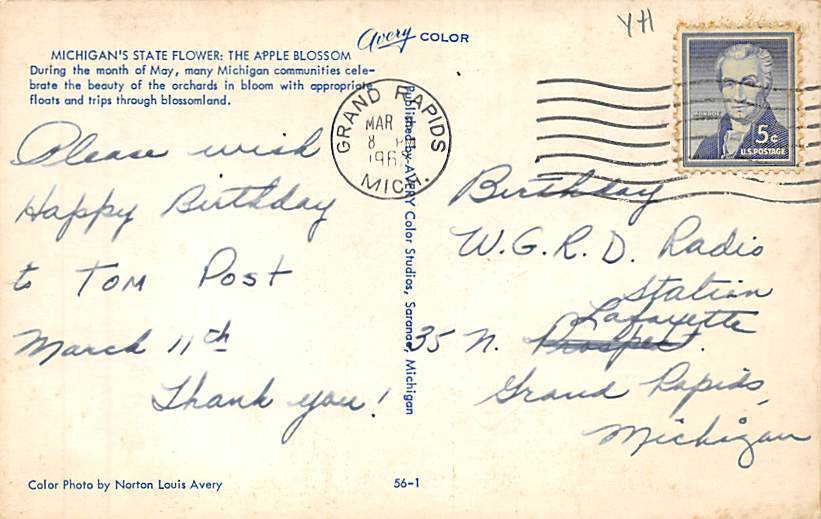 Avery COLOR
YH
MICHIGAN'S STATE FLOWER: THE APPLE BLOSSOM
During the month of May, many Michigan communities cele-
brate the beauty of the orchards in bloom with appropriate
floats and trips through blossomland.
GRAND RAPIDS
MAR
8
196
MICH.
5¢
U.S. POSTAGE
Please wish
Happy Birthday
to TOM Post
March 11th
Thank you!
Published by AVERY Color Studios, Saranac, Michigan
Birthday
W.G.R.D. Radio
Station
Lafayette
35 N. Prospect.
Grand Rapids,
Michigan
Color Photo by Norton Louis Avery
56-1